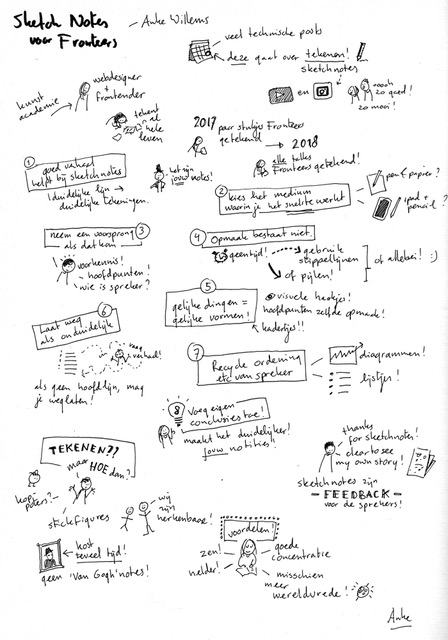 Sketch Notes
voor Fronteers
- Anke Willems
veel technische posts
deze gaat over tekenen!
sketchnotes
webdesigner
+
frontender
kunst
academie
tekent
al
hele
leven
en
ooooh
zo goed!
zo mooi!
2017 paar stukjes Fronteers
getekend
→ 2018
alle talks
Fronteers getekend!
1
goed verhaal
helpt bij sketchnotes
duidelijke lijn →
duidelijke tekeningen.
het zijn
jouw notes!
2
kies het medium
waarin je het snelste werkt
pen & papier?
ipad &
pencil?
3
neem een voorsprong
als dat kan
voorkennis!
hoofdpunten!
wie is spreker?
4
Opmaak bestaat niet.
geen tijd!
gebruik
stippellijnen
of pijlen!
of allebei! :)
5
gelijke dingen =
gelijke vormen!
visuele haakjes!
hoofdpunten zelfde opmaak!
kadertjes!!
6
Laat weg
als onduidelijk
vaag
verhaal!
als geen hoofdlijn, mag
je weglaten!
7
Recycle ordening
etc van spreker
diagrammen!
lijstjes!
8
Voeg eigen
conclusies toe!
maakt het duidelijker!
Jouw notities!
TEKENEN??
maar HOE dan?
koppoters?
stickfigures
wij
zijn
herkenbaar!
kost
teveel tijd!
geen 'Van Gogh' notes!
thanks
for sketchnotes!
clear to see
my own story!
sketchnotes zijn
- FEEDBACK -
voor de sprekers!
voordelen!
zen!
helder!
goede
concentratie
misschien
meer
wereldvrede!
Anke